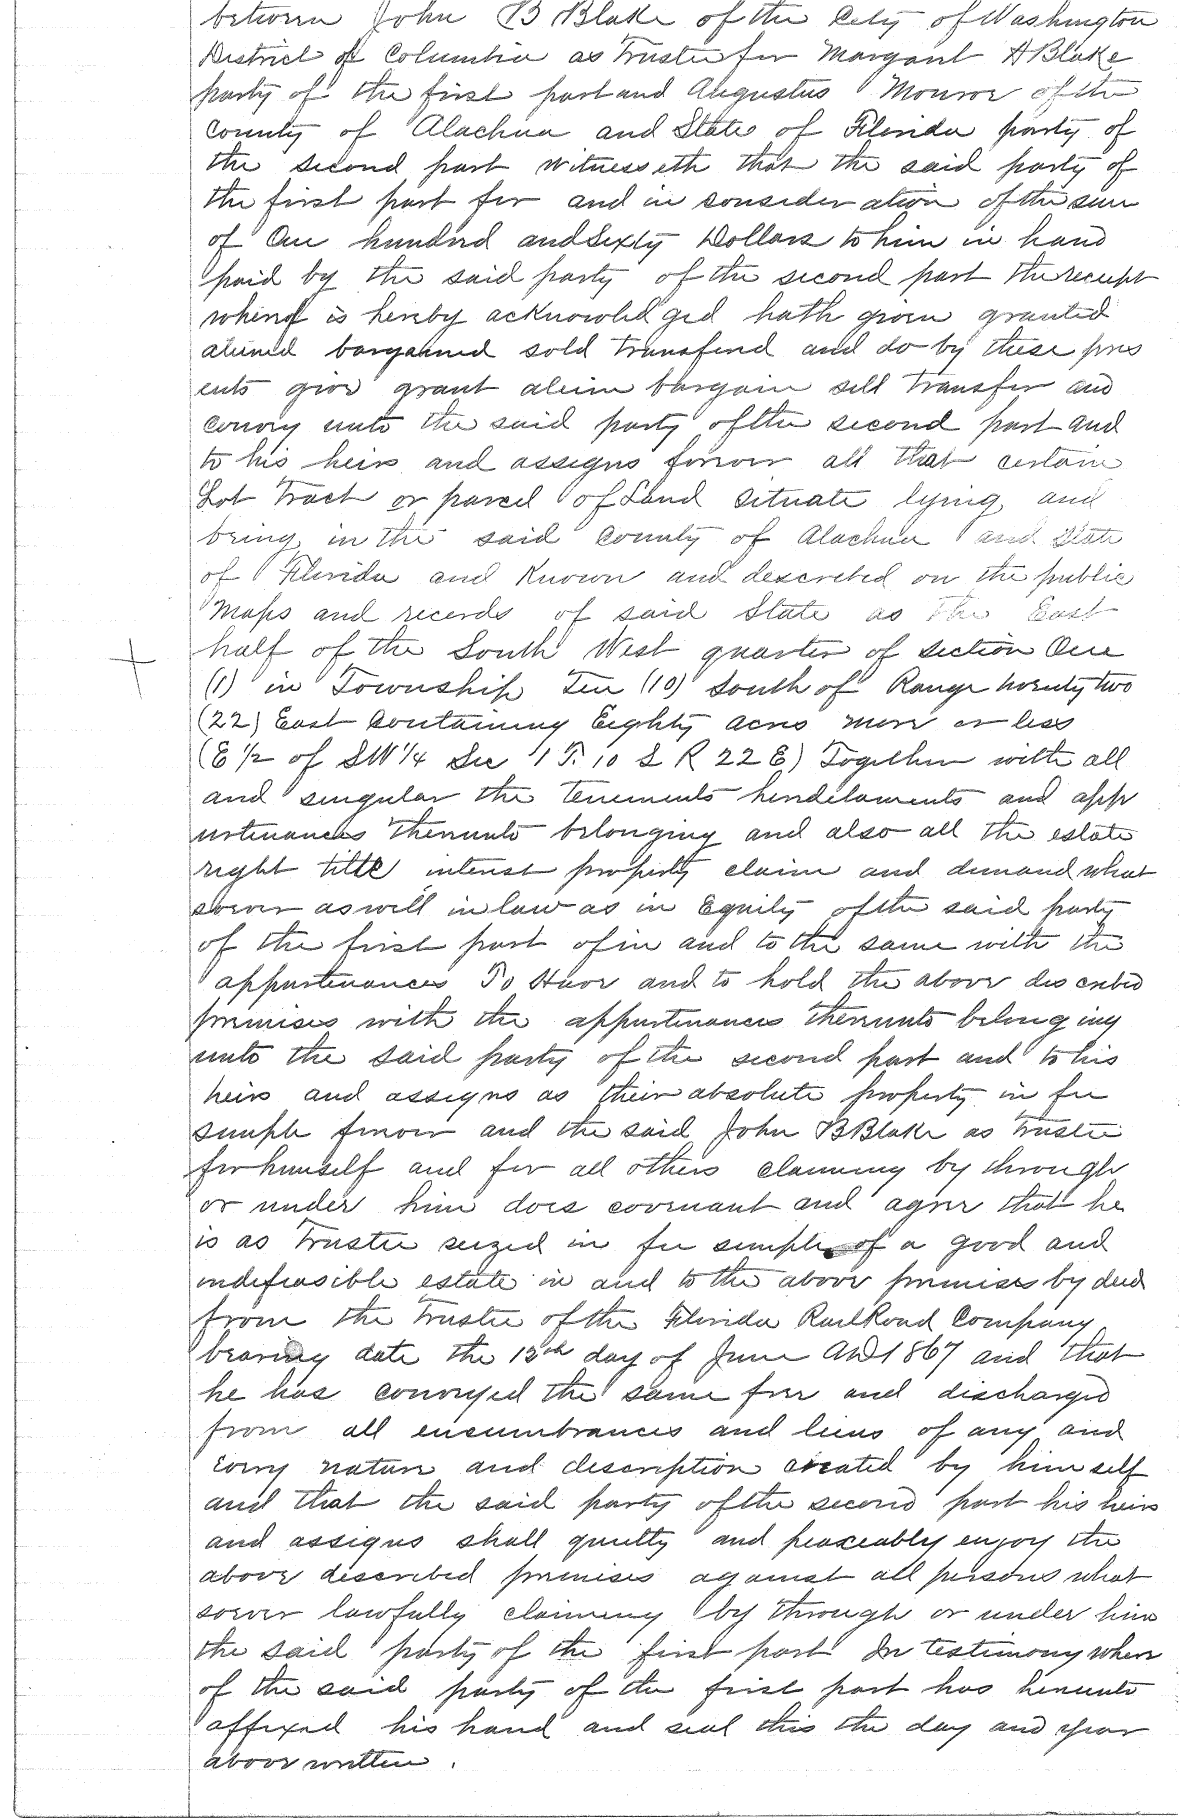 between John B Blake of the City of Washington
District of Columbia as Trustee for Margaret A Blake
party of the first part and Augustus Monroe of the
County of Alachua and State of Florida party of
the second part Witnesseth that the said party of
the first part for and in consideration of the sum
of One hundred and Sixty Dollars to him in hand
paid by the said party of the second part the receipt
whereof is hereby acknowledged hath given granted
aliened bargained sold transfered and do by these pres
ents give grant alien bargain sell transfer and
convey unto the said party of the second part and
to his heirs and assigns forever all that certain
Lot Tract or parcel of Land situate lying and
being in the said County of Alachua and State
of Florida and Known and described on the public
Maps and records of said State as the East
half of the South West quarter of section One
(1) in Township Ten (10) South of Range twenty two
(22) East Containing Eighty acres more or less
(E 1/2 of SW 1/4 Sec 1 T. 10 S R 22 E) Together with all
and singular the tenements heredetaments and app
urtenances thereunto belonging and also all the estate
right title interest property claim and demand what
soever as well in law as in Equity of the said party
of the first part of in and to the same with the
appurtenances To Have and to hold the above described
premises with the appurtenances thereunto belonging
unto the said party of the second part and to his
heirs and assigns as their absolute property in fee
simple forever and the said John B Blake as trustee
for himself and for all others claiming by through
or under him does covenant and agree that he
is as Trustee seized in fee simple of a good and
indefeasible estate in and to the above premises by deed
from the Trustee of the Florida RailRoad Company
bearing date the 12th day of June AD 1867 and that
he has conveyed the same free and discharged
from all encumbrances and liens of any and
every nature and description created by himself
and that the said party of the second part his heirs
and assigns shall quietly and peaceably enjoy the
above described premises against all persons what
soever lawfully claiming by through or under him
the said party of the first part In testimony where
of the said party of the first part has hereunto
affixed his hand and seal this the day and year
above written.